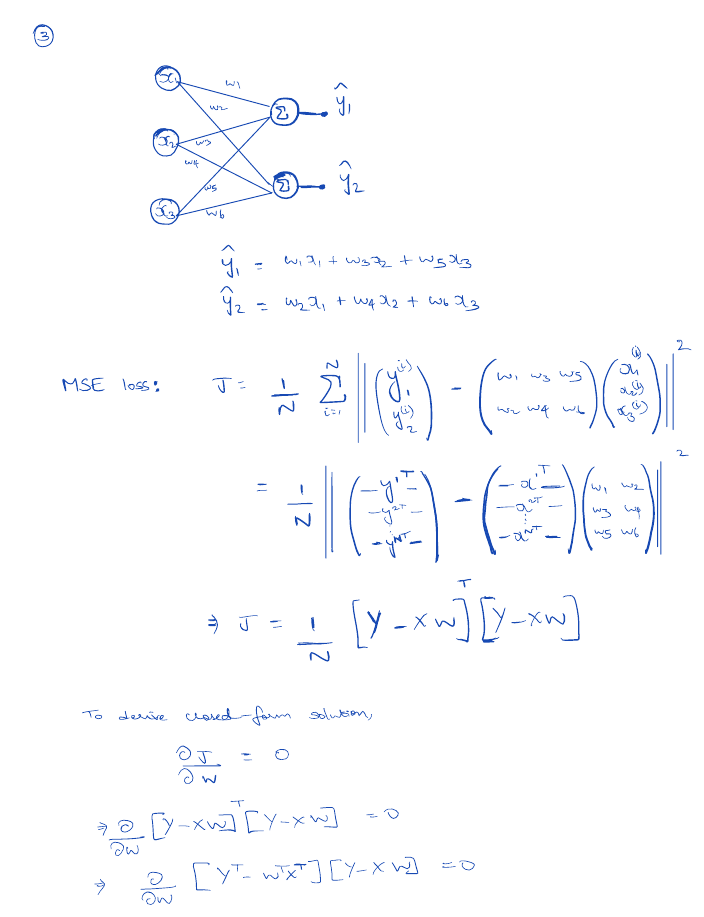 ③
x₁ w₁ Σ ŷ₁
w₂
x₂ w₃
w₄ Σ ŷ₂
x₃ w₅
w₆
ŷ₁ = w₁x₁ + w₃x₂ + w₅x₃
ŷ₂ = w₂x₁ + w₄x₂ + w₆x₃
MSE loss: J = 1/N Σ_{i=1}^{N} || (y₁⁽ⁱ⁾ ; y₂⁽ⁱ⁾) - (w₁ w₃ w₅ ; w₂ w₄ w₆) (x₁⁽ⁱ⁾ ; x₂⁽ⁱ⁾ ; x₃⁽ⁱ⁾) ||²
= 1/N || (-y¹ᵀ- ; -y²ᵀ- ; -yᴺᵀ-) - (-x¹ᵀ- ; -x²ᵀ- ; ⋮ ; -xᴺᵀ-) (w₁ w₂ ; w₃ w₄ ; w₅ w₆) ||²
⇒ J = 1/N [Y - XW]ᵀ [Y - XW]
To derive closed-form solution,
∂J/∂W = 0
⇒ ∂/∂W [Y - XW]ᵀ [Y - XW] = 0
⇒ ∂/∂W [Yᵀ - WᵀXᵀ] [Y - XW] = 0